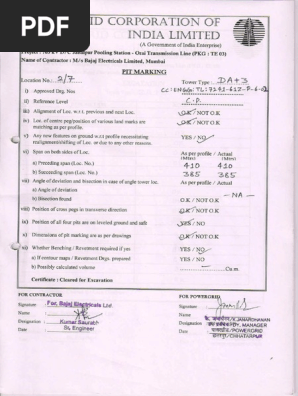 PDF
ID CORPORATION OF
INDIA LIMITED
(A Government of India Enterprise)
Pooling Station - Orai Transmission Line (PKG : TE 03)
Name of Contractor : M/s Bajaj Electricals Limited, Mumbai
PIT MARKING
Location No.: 2/7 Tower Type : DA+3
i) Approved Drg. Nos
ii) Reference Level C.P.
iii) Alignment of Loc. w.r.t. previous and next Loc. OK / NOT OK
iv) Loc. of centre peg/position of various land marks are OK / NOT OK
matching as per profile.
v) Any new features on ground w.r.t profile necessitating YES / NO
realignment/shifting of Loc. or due to any other reasons.
vi) Span on both sides of Loc. As per profile / Actual
(Mtrs) (Mtrs)
a) Preceding span (Loc. No.) 410 410
b) Succeeding span (Loc. No.) 385 385
vii) Angle of deviation and bisection in case of angle tower loc. As per profile / Actual
a) Angle of deviation
b) Bisection Broad OK / NOT OK - NA -
viii) Position of cross pegs in transverse direction OK / NOT OK
ix) Position of all four pits are on leveled ground and safe YES / NO
x) Dimensions of pit marking are as per drawings OK / NOT OK
xi) Whether Benching / Revetment required if yes YES / NO
a) If contour maps / Revetment Drgs. prepared YES / NO
b) Possibly calculated volume Cu.m.
Certificate : Cleared for Excavation
FOR CONTRACTOR FOR POWERGRID
Signature : For, Bajaj Electricals Ltd. Signature
Name : Name
Designation : Kumar Saurabh Designation
Date Sr. Engineer Date